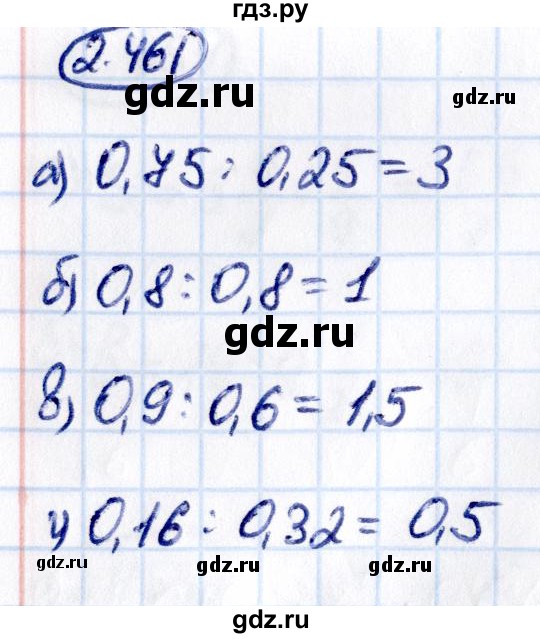 гдз.ру
2.461
gdz.ru
gdz.ru
а) 0,75 : 0,25 = 3
gdz.ru
gdz.ru
б) 0,8 : 0,8 = 1
gdz.ru
в) 0,9 : 0,6 = 1,5
gdz.ru
gdz.ru
г) 0,16 : 0,32 = 0,5
gdz.ru
gdz.ru
gdz.ru
gdz.ru